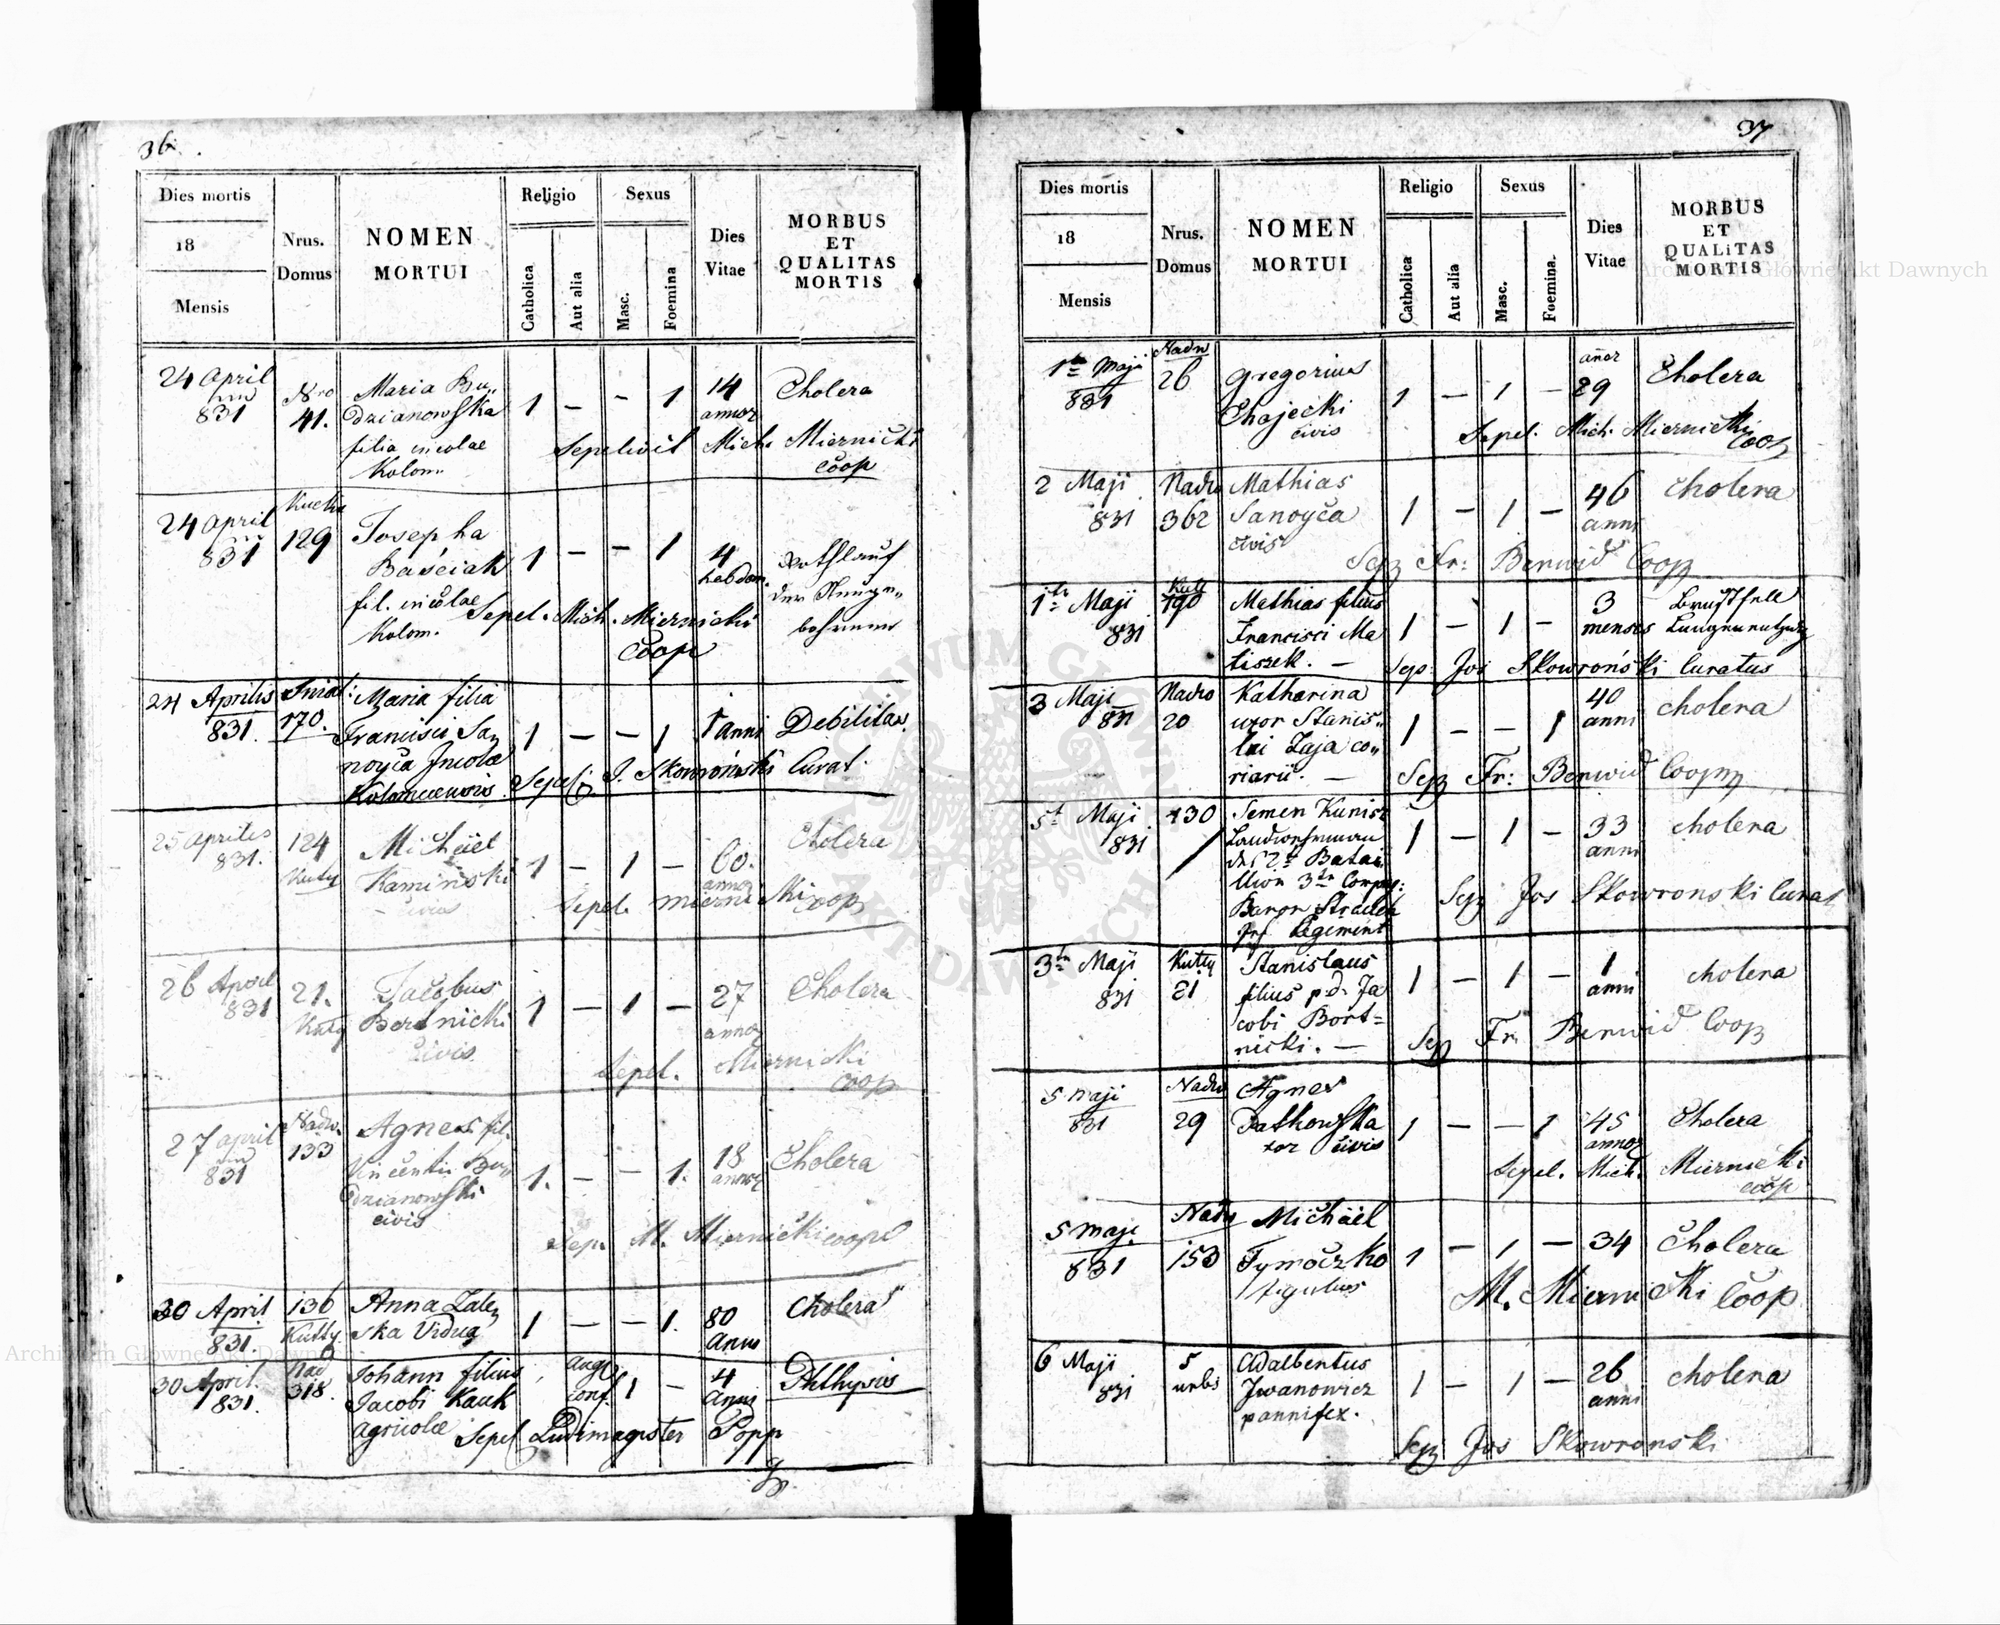 36.
Dies mortis
18
Mensis
Nrus.
Domus
NOMEN
MORTUI
Religio
Catholica
Aut alia
Sexus
Masc.
Foemina
Dies
Vitae
MORBUS
ET
QUALITAS
MORTIS
24 April
831
Nro
41.
Maria Bu„
dzianowska
filia incolae
Kolom.
1 — — 1
14
annor
Cholera
Sepelivit Mich. Miernicki
coop
24 April
831
129
Josepha
Baściak
fil. incolae
Kolom.
1 — — 1
4
hebdom.
Rothlauf
der
Sepel. Mich. Miernicki
Coop
24 Aprilis
831.
Sniat:
170.
Maria filia
Francisci Sa„
noyca Incolae
Kolomeensis
1 — — 1
1 anni
Debilitas.
Sepel: J. Skowroński Curat.
25 Aprilis
831.
124
Kuty
Michäel
Kamiński
civis
1 — 1 —
60.
annor
Cholera
Sepel. Miernicki
coop
26 April
831
21.
Kuty
Jacobus
Bortnicki
civis
1 — 1 —
27
annor
Cholera
Sepel. Miernicki
coop
27 April
831
Nadw.
133
Agnes fil.
Vincentii Bu„
dzianowski
civis
1. — — 1.
18
annor
Cholera
Sep. M. Miernicki coop
30 April
831.
136
Kutty
Anna Zale„
ska Vidua
1 — — 1.
80
Anni
Cholera
30 April.
831.
Nad
318.
Johann filius
Jacobi Kauk
agricolae
Augs
conf.
1 —
4
Anni
Phthysis
Sepel Ludimagister Popp
37
Dies mortis
18
Mensis
Nrus.
Domus
NOMEN
MORTUI
Religio
Catholica
Aut alia
Sexus
Masc.
Foemina.
Dies
Vitae
MORBUS
ET
QUALITAS
MORTIS
1te Maji
831
Nadw
26
Gregorius
Chajecki
civis
1 — 1 —
annor
29
Cholera
Sepel. Mich. Miernicki
coop
2 Maji
831
Nadw
362
Mathias
Sanoyca
civis
1 — 1 —
46
anni
Cholera
Sep Fr: Berwid Coop
1te Maji
831
Kutt
190
Mathias filius
Francisci Ma
tiszek. —
1 — 1 —
3
menses
Brustfell
Lungenentzündg
Sep. Jos Skowroński Curatus
3 Maji
831
Nadw
20
Katharina
uxor Stanis„
lai Zaja co„
riarii. —
1 — — 1
40
anni
cholera
Sep Fr: Berwid Coop
5t Maji
831
130
Semen Kunisz
des 2t Batai
llion 3te Compag:
Baron Strauch
Inf Regiment
1 — 1 —
33
anni
cholera
Sep Jos Skowronski Curat
3te Maji
831
Kutty
21
Stanislaus
filius p.d. Ja
cobi Bort=
nicki. —
1 — 1 —
1
anni
cholera
Sep Fr. Berwid Coop
5 maji
831
Nadw
29
Agnes
Patkowska
xor civis
1 — — 1
45
annor
Cholera
Sepel. Mich. Miernicki
coop
5 maji
831
Nadw
153
Michäel
Tymoczko
figulus
1 — 1 — 34
Cholera
M. Miernicki Coop
6 Maji
831
5
urbis
Adalbertus
Jwanowicz
pannifex.
1 — 1 —
26
anni
cholera
Sep Jos Skowronski
Archiwum Główne Akt Dawnych
Archiwum Główne Akt Dawnych
ARCHIWUM GŁÓWNE
AKT DAWNYCH